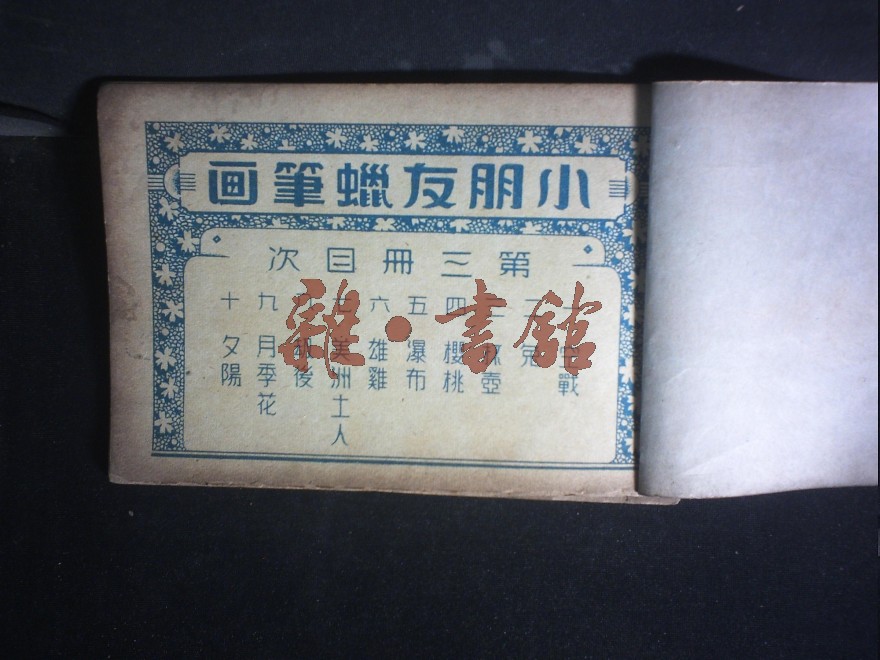 小朋友蠟筆画
第三冊目次
戰
二 兔
三 壺
四 櫻桃
五 瀑布
六 雄雞
七 美洲土人
後
九 月季花
十 夕陽
雜·書館